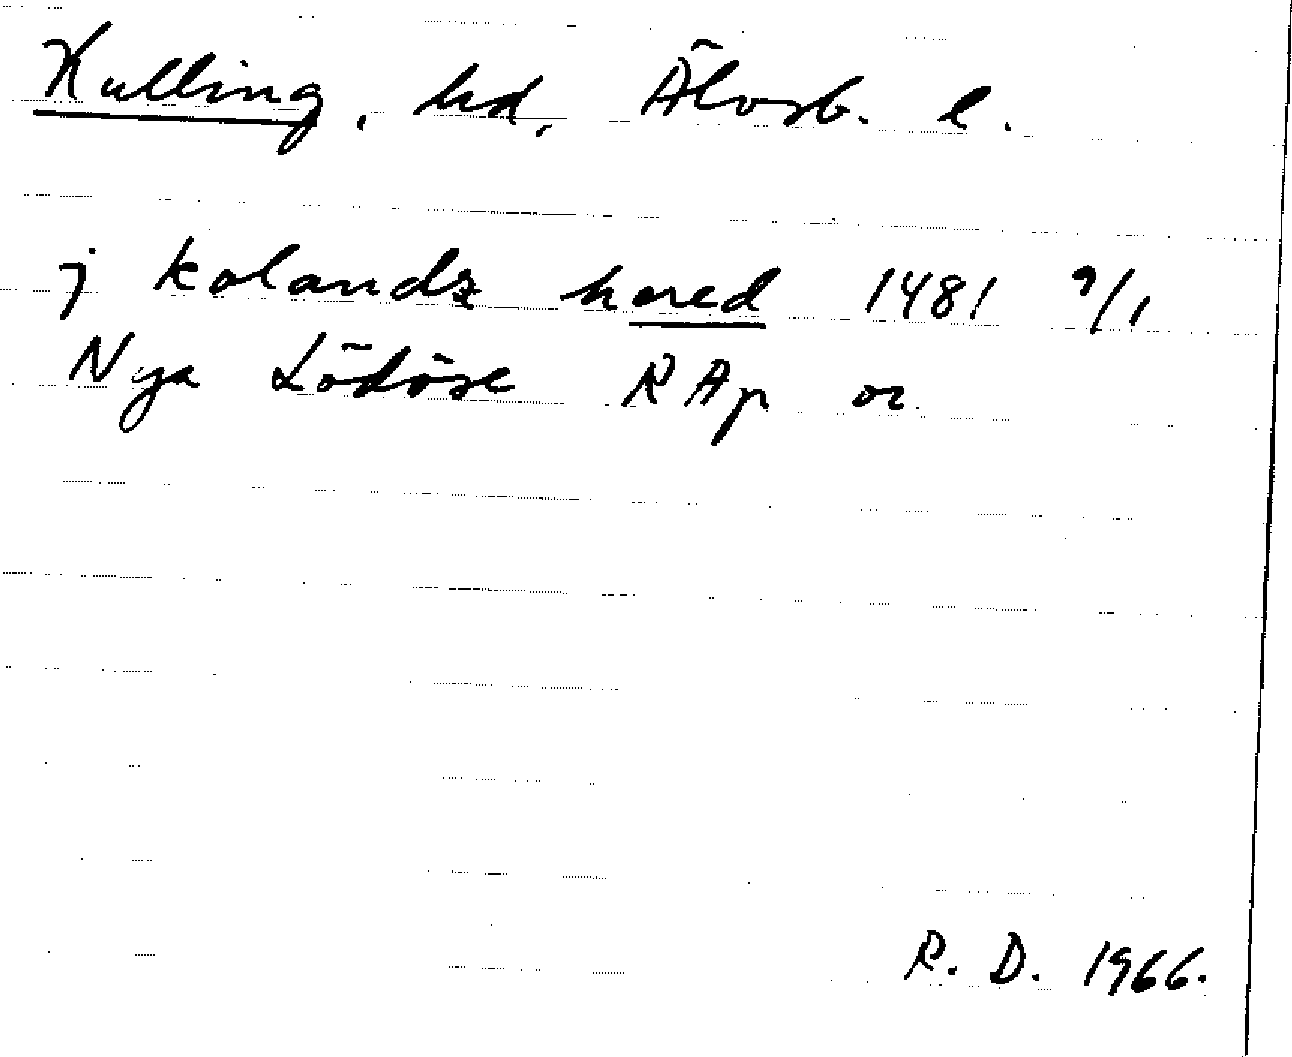 Kulling, hd, Älvsb. l.
j kolandz hæred 1481 9/1
Nya Lödöse RAp or
R. D. 1966.